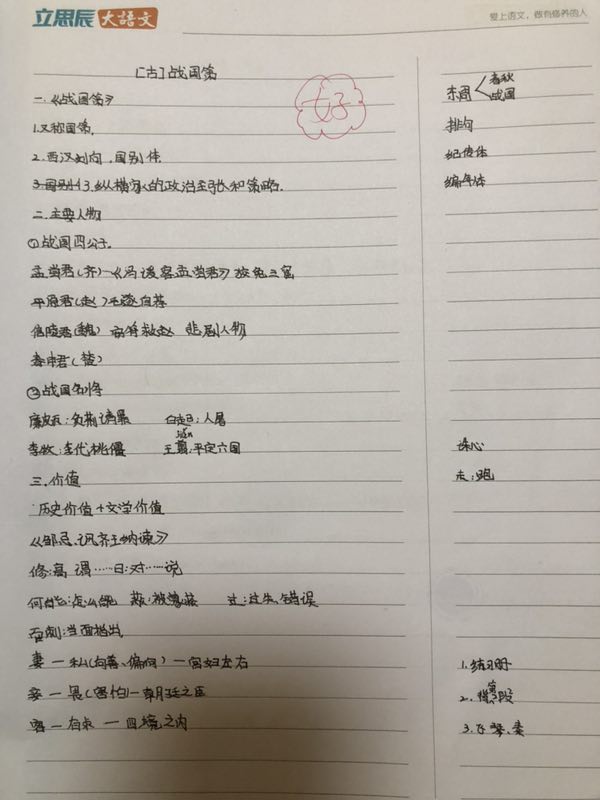 立思辰大语文
爱上语文，做有修养的人
[古]战国策
好
一.《战国策》
1.又称国策.
2.西汉刘向.国别体
3.纵横家的政治主张和策略.
二.主要人物
①战国四公子.
孟尝君(齐)-《冯谖客孟尝君》狡兔三窟
平原君(赵)毛遂自荐
信陵君(魏) 窃符救赵 悲剧人物
春申君(楚)
②战国名将
廉颇:负荆请罪 白起:人屠
李牧:李代桃僵 王翦:平定六国
jiǎn
三.价值
历史价值+文学价值
《邹忌讽齐王纳谏》
修:高 谓……曰:对……说
何能:怎么能 蔽:被蒙蔽 过:过失、错误
面刺:当面指出
妻—私(向着、偏向)—宫妇左右
妾—畏(害怕)—朝廷之臣
客—有求—四境之内
东周
春秋
战国
排句
纪传体
编年体
诛心
走:跑
1.练习册
2.段
3.